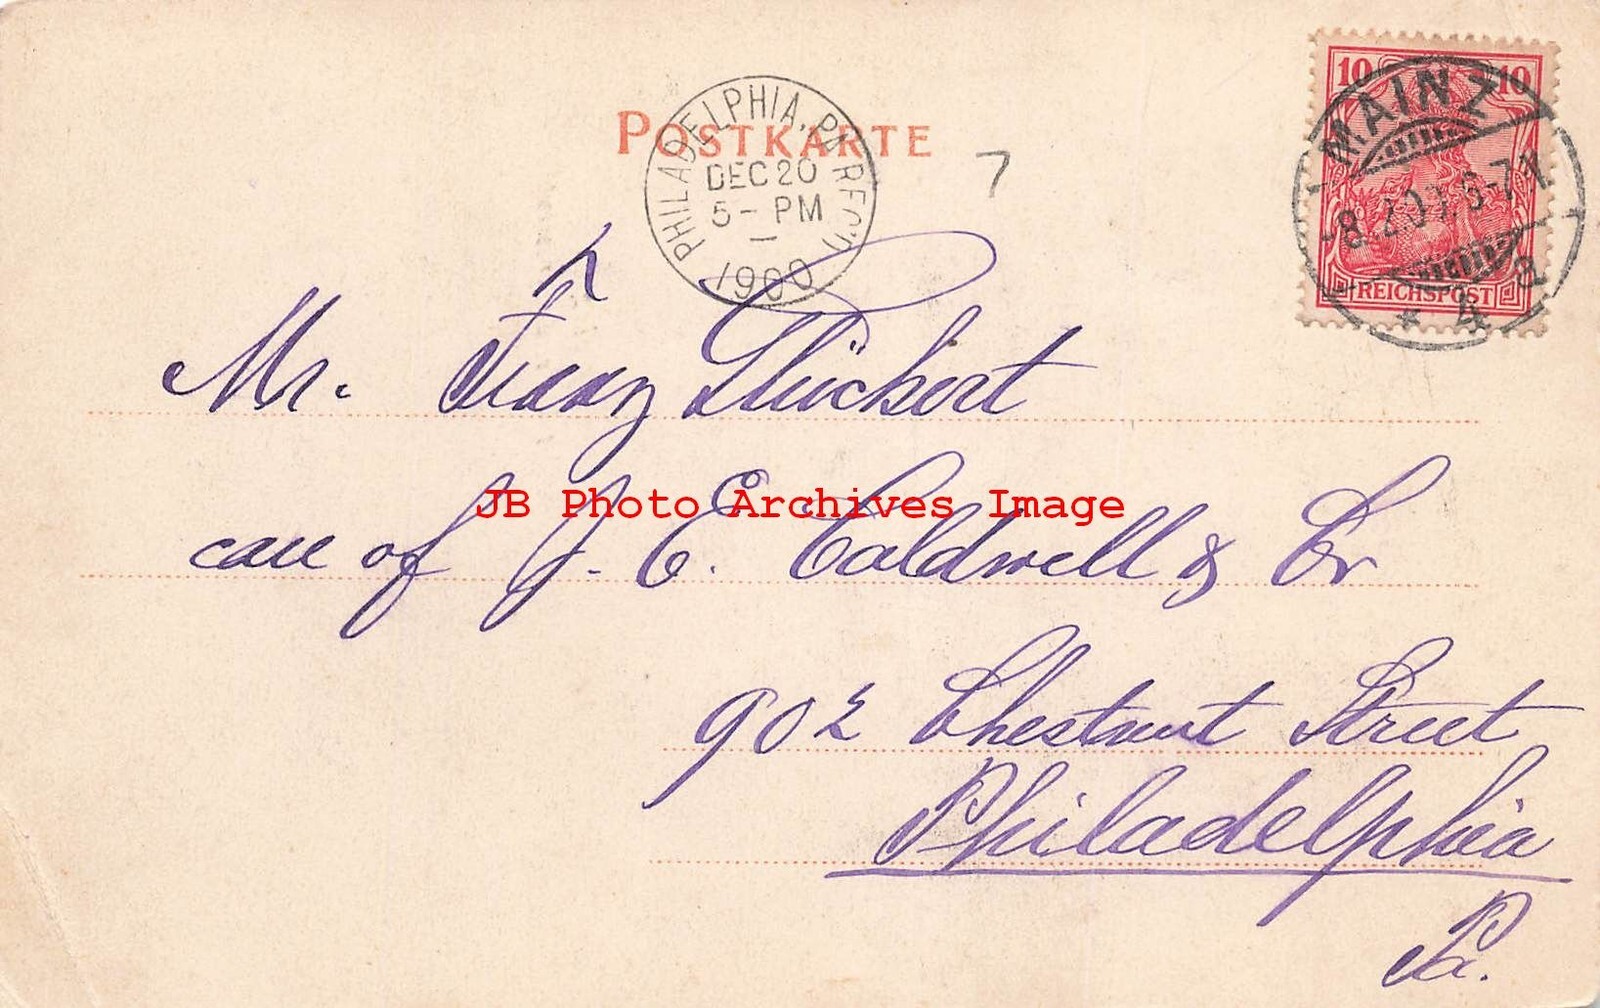 POSTKARTE
PHILADELPHIA, PA. REC'D
DEC 20
5- PM
1900
7
10 10
REICHSPOST
MAINZ
* 4
Mr. Franz
care of J. E. Caldwell & Co
902 Chestnut Street
Philadelphia
Pa.
JB Photo Archives Image